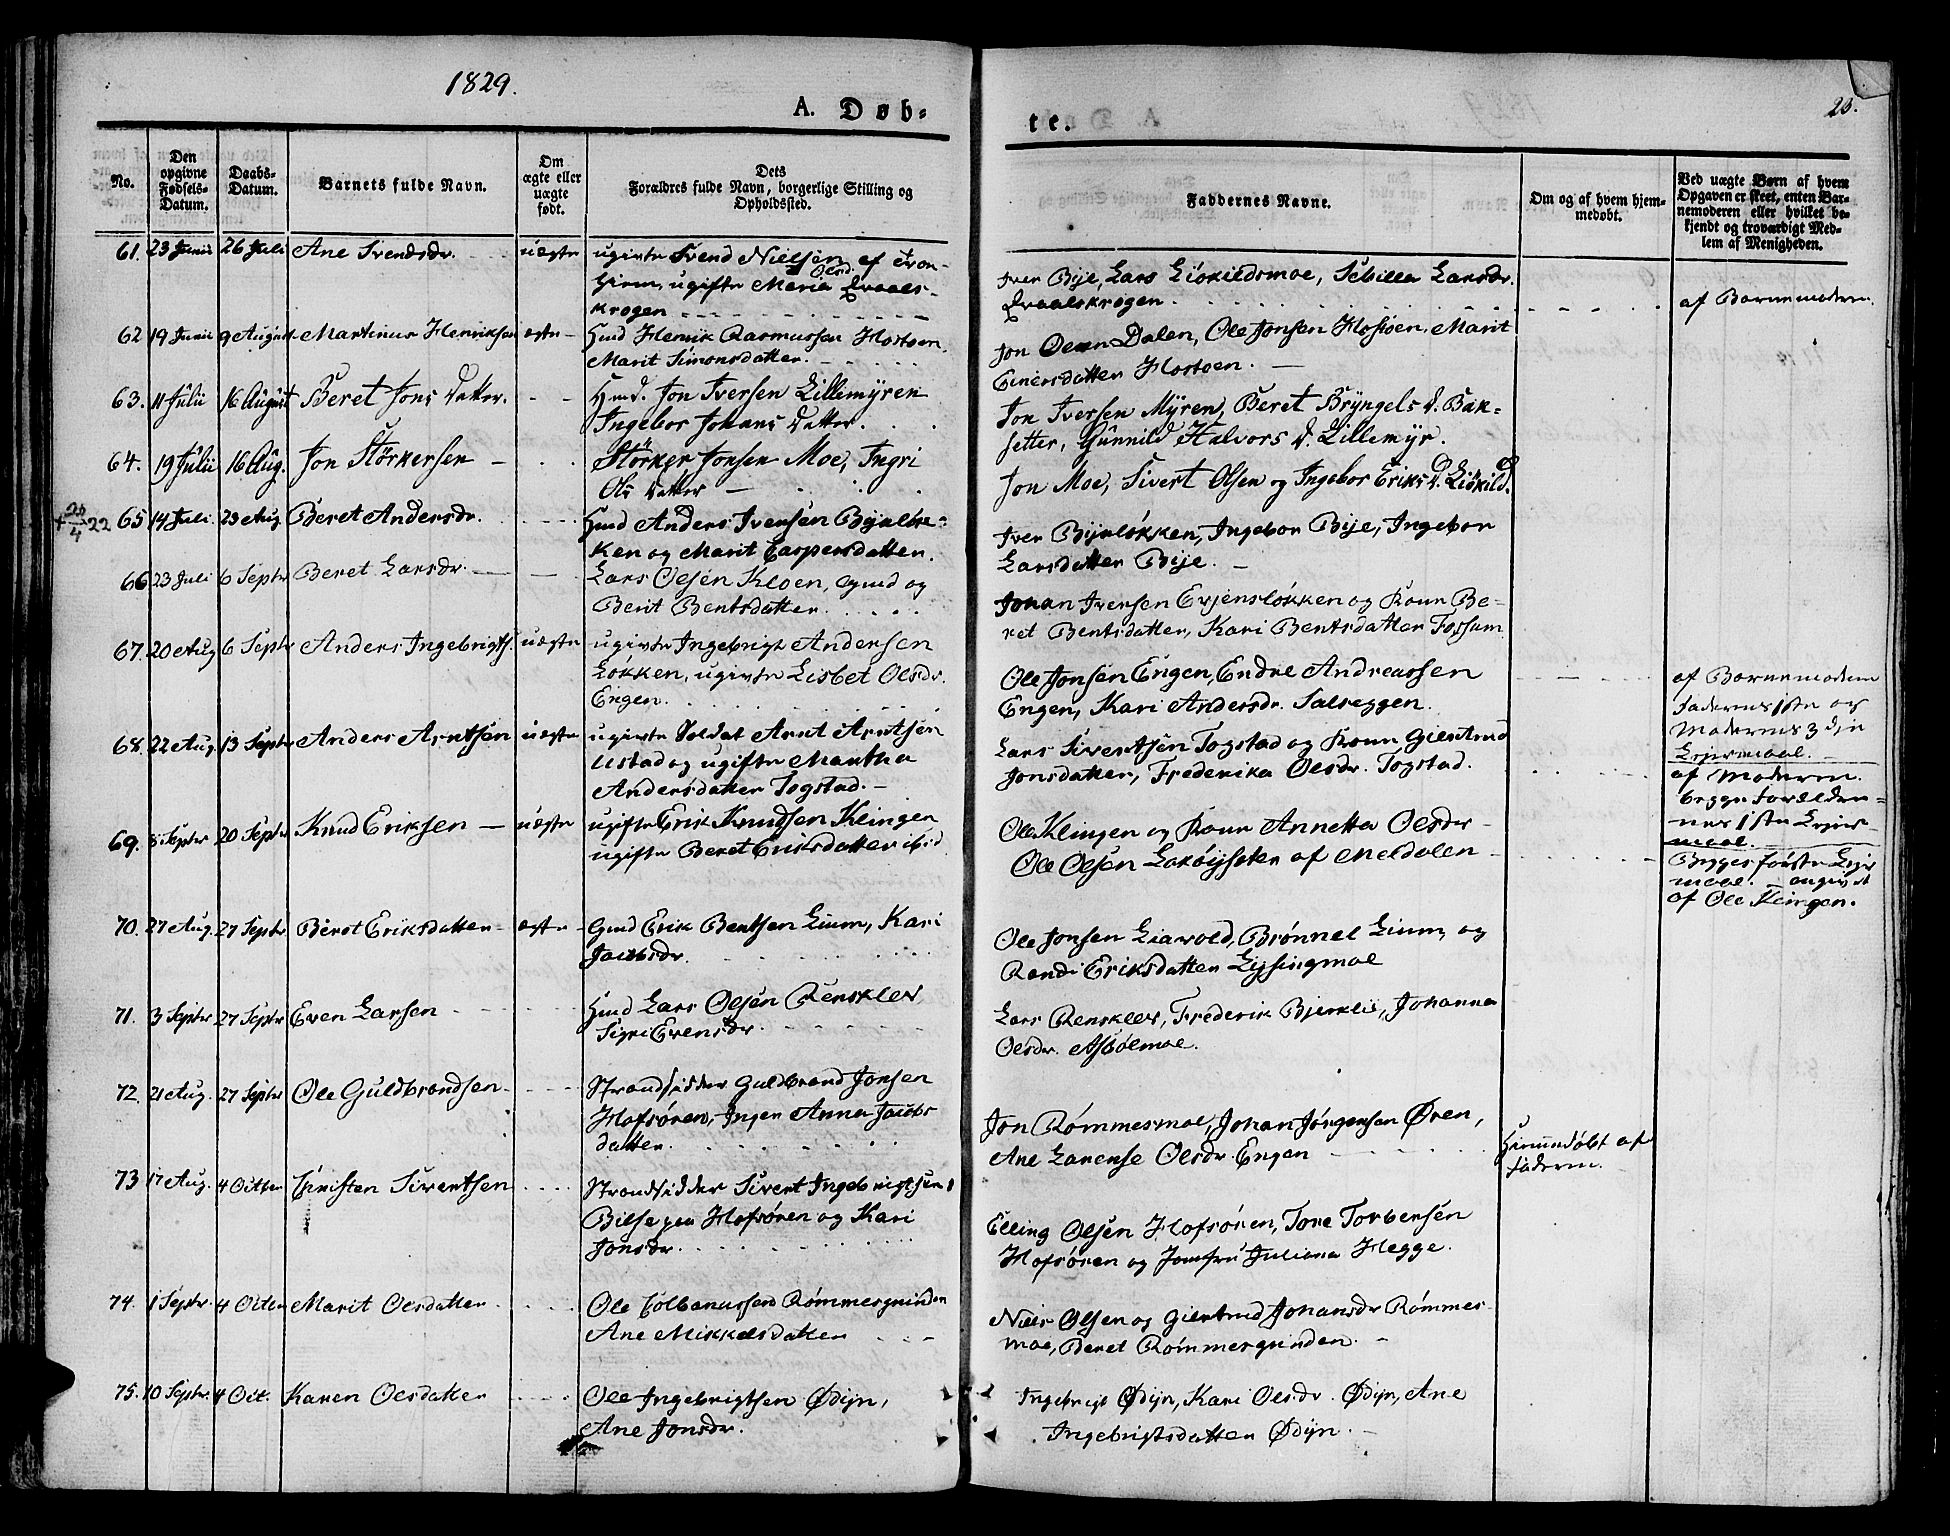 1829.
A. Døb-
te.
23.
No.
Den opgivne Fødsels-Datum.
Daabs-Datum.
Barnets fulde Navn.
Om ægte eller uægte født.
Dets Forældres fulde Navn, borgerlige Stilling og Opholdssted.
Faddernes Navne.
Om og af hvem hjem-medøbt.
Ved uægte Børn af hvem Opgaven er skeet, enten Bar-nemoderen eller hvilket be-kjendt og troværdigt Med-lem af Menigheden.
61. 23 Junii 26 Juli Ane Svendsdr. uægte ugivte Svend Nielsen af Tron-
Olsd.
hiem, ugifte Maria Qvaals-
krogen
Iver Bije, Lars Lioskildsmoe, Sebilla Larsdr.
Qvaalskrogen
af Barnemodern
62 19 Junii 9 August Martinus Henriksen ægte Hmd Henrik Rasmussen Hostoen
Marit Simonsdatter.
Jon Dalen, Ole Jonsen Hostoen, Marit
Einersdatter Hostoen.
63. 11 Julii 16 August Beret Jons Datter. Hmd. Jon Iversen Lillemyren
Ingebor Johans Datter.
Jon Iversen Myren, Beret Bryngels D. Bak-
setter, Gunnild Halvors D. Lillemyr.
64. 19 Julii 16 Aug. Jon Störkersen Störker Jonsen Moe, Ingri
Ols Datter
Jon Moe, Sivert Olsen og Ingebor Eriks D. Lioskild.
+ 26/4 22 65 14 Juli 23 Aug Beret Andersdr. Hmd Anders Iversen Bijeløk-
ken og Marit Caspersdatter.
Iver Bijeløkken, Ingebor Bije, Ingebor
Larsdatter Bije.
66 23 Juli 6 Septr Beret Larsdr. Lars Olsen Kloen, Gmd og
Berit Bentsdatter
Johan Iversen Evjensløkken og Konn Be-
ret Bentsdatter, Kari Bentsdatter Fossum
67. 20 Aug 6 Septr Anders Ingebrigts. uægte ugivte Ingebrigt Andersen
Løkken, ugivte Lisbet Olsdr.
Engen.
Ole Jonsen Engen, Endre Andreassen
Engen, Kari Andersdr. Salreggen.
af Barnemodern
Faderns 1ste og
Moderns 3die
Leiermaal.
68. 22 Aug. 13 Septr Anders Arntsen uægte ugivte Soldat Arnt Arntsen
Ustad og ugifte Martha
Andersdatter Togstad.
Lars Sivertsen Togstad og Konn Giertrud
Jonsdatter, Frederika Olsdr. Togstad.
af Modern.
begge Forældre-
nes 1ste Leier-
maal.
69. 5 Septr 20 Septr Knud Eriksen uægte ugifte Erik Knudsen Klingen
ugifte Beret Eriksdatter ibid
Ole Klingen og Konn Annetta Olsdr
Ole Olsen af Meldalen
Begges første Leier
maal. angivet
af Ole Klingen.
70. 27 Aug. 27 Septr Beret Eriksdatter ægte Gmd Erik Bentsen Lium, Kari
Jacobsdr.
Ole Jonsen Liavold, Brønnel Lium og
Randi Eriksdatter Lysingmoe
71. 3 Septr 27 Septr Even Larsen Hmd Lars Olsen Rensklev
Sigri Evensdr.
Lars Rensklev, Frederik Bjerklii, Johanna
Olsdr. Asbølmoe.
72. 21 Aug. 27 Septr Ole Guldbrandsen Strandsidder Guldbrand Jonsen
Hofsøren, Anna Jacobs
datter.
Jon Rømmesmoe, Johan Jørgensen Øren,
Ane Larense Olsdr. Engen
Hiemmedøbt af
Faderen.
73 17 Aug. 4 Octbr Christen Sivertsen Strandsidder Sivert Ingebrigtsen
Bilse paa Hofsøren og Kari
Jonsdr.
Elling Olsen Hofsøren, Tore Torbersen
Hofsøren og Jomfru Juliana Hegge.
74. 1 Septr. 4 Octbr Marit Olsdatter Ole Colbanussen Rømmesgrinden
Ane Mikkelsdatter
Niels Olsen og Giertrud Johansdr Rømmes-
moe, Beret Rømmesgrinden.
75. 10 Septr. 4 Oct. Karen Olsdatter Ole Ingebrigtsen Ødijn,
Ane Jonsdr.
Ingebrigt Ødijn, Kari Olsdr. Ødijn, Ane
Ingebrigtsdatter Ødijn.